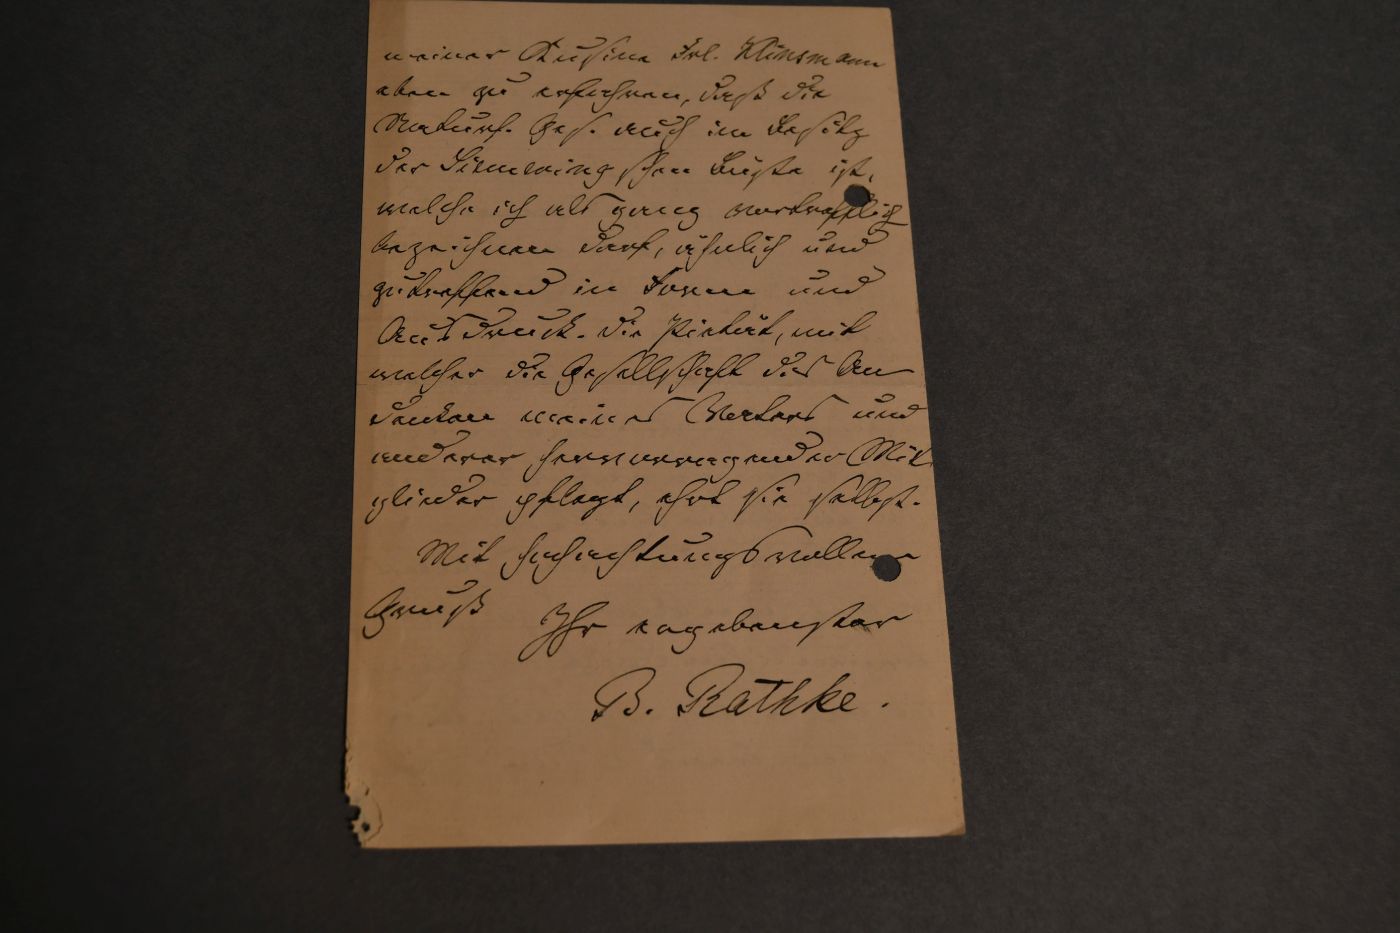 meiner Kusine Frl. Klinsmann
eben zu erfahren, daß die
Naturf. Ges. auch im Besitz
der Siemeringschen Büste ist,
welche ich als ganz vortrefflich
bezeichnen darf, ähnlich und
zutreffend in Form und
Ausdruck. Die Pietät, mit
welcher die Gesellschaft das An
denken meines Vaters und
anderer hervorragender Mit
glieder pflegt, ehrt sie selbst.
Mit hochachtungsvollem
Gruß
Ihr ergebenster
B. Rathke.